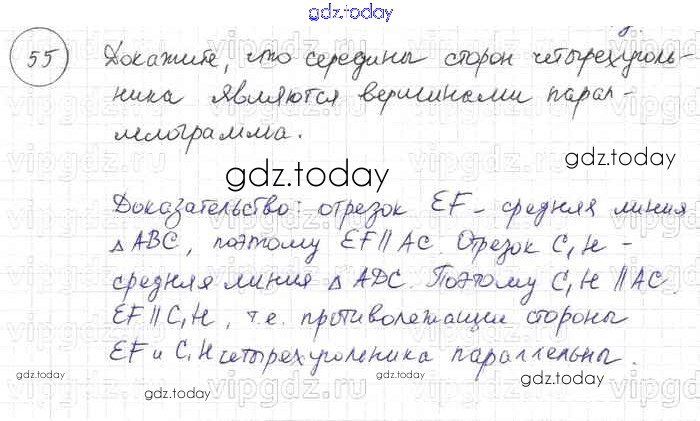 gdz.today
55 Докажите, что середины сторон четырехуголь-
ника являются вершинами парал-
лелограмма.
gdz.today
Доказательство: отрезок EF - средняя линия
△ABC, поэтому EF∥AC. Отрезок C₁H -
средняя линия △ADC. Поэтому C₁H∥AC.
EF∥C₁H, т.е. противолежащие стороны
EF и C₁H четырехуголеника параллельны.
gdz.today
gdz.today
gdz.today